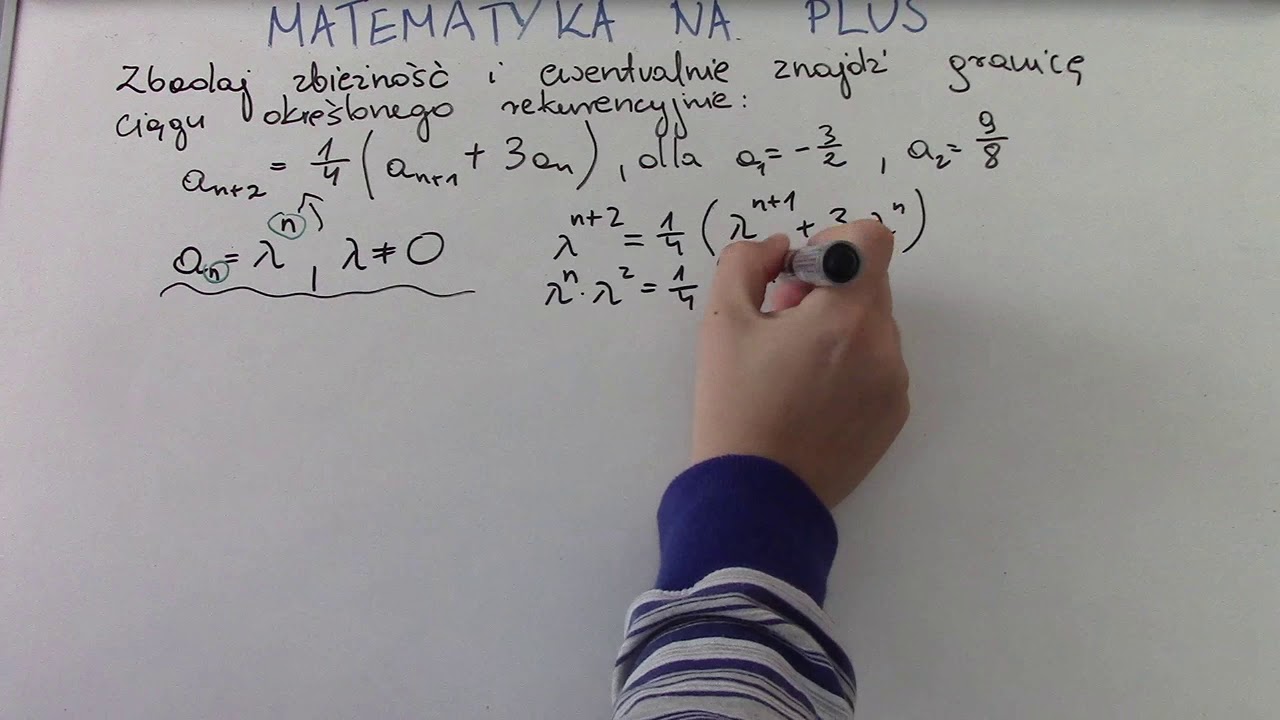 MATEMATYKA NA PLUS
Zbadaj zbieżność i ewentualnie znajdź granicę
ciągu określonego rekurencyjnie:
aₙ₊₂ = 1/4 (aₙ₊₁ + 3aₙ), dla a₁ = -3/2, a₂ = 9/8
aₙ = λⁿ, λ ≠ 0
λⁿ⁺² = 1/4 (λⁿ⁺¹ + λⁿ)
λⁿ · λ² = 1/4